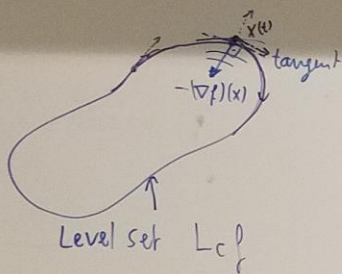 x(t)
tangent
-(∇f)(x)
Level set L_c f